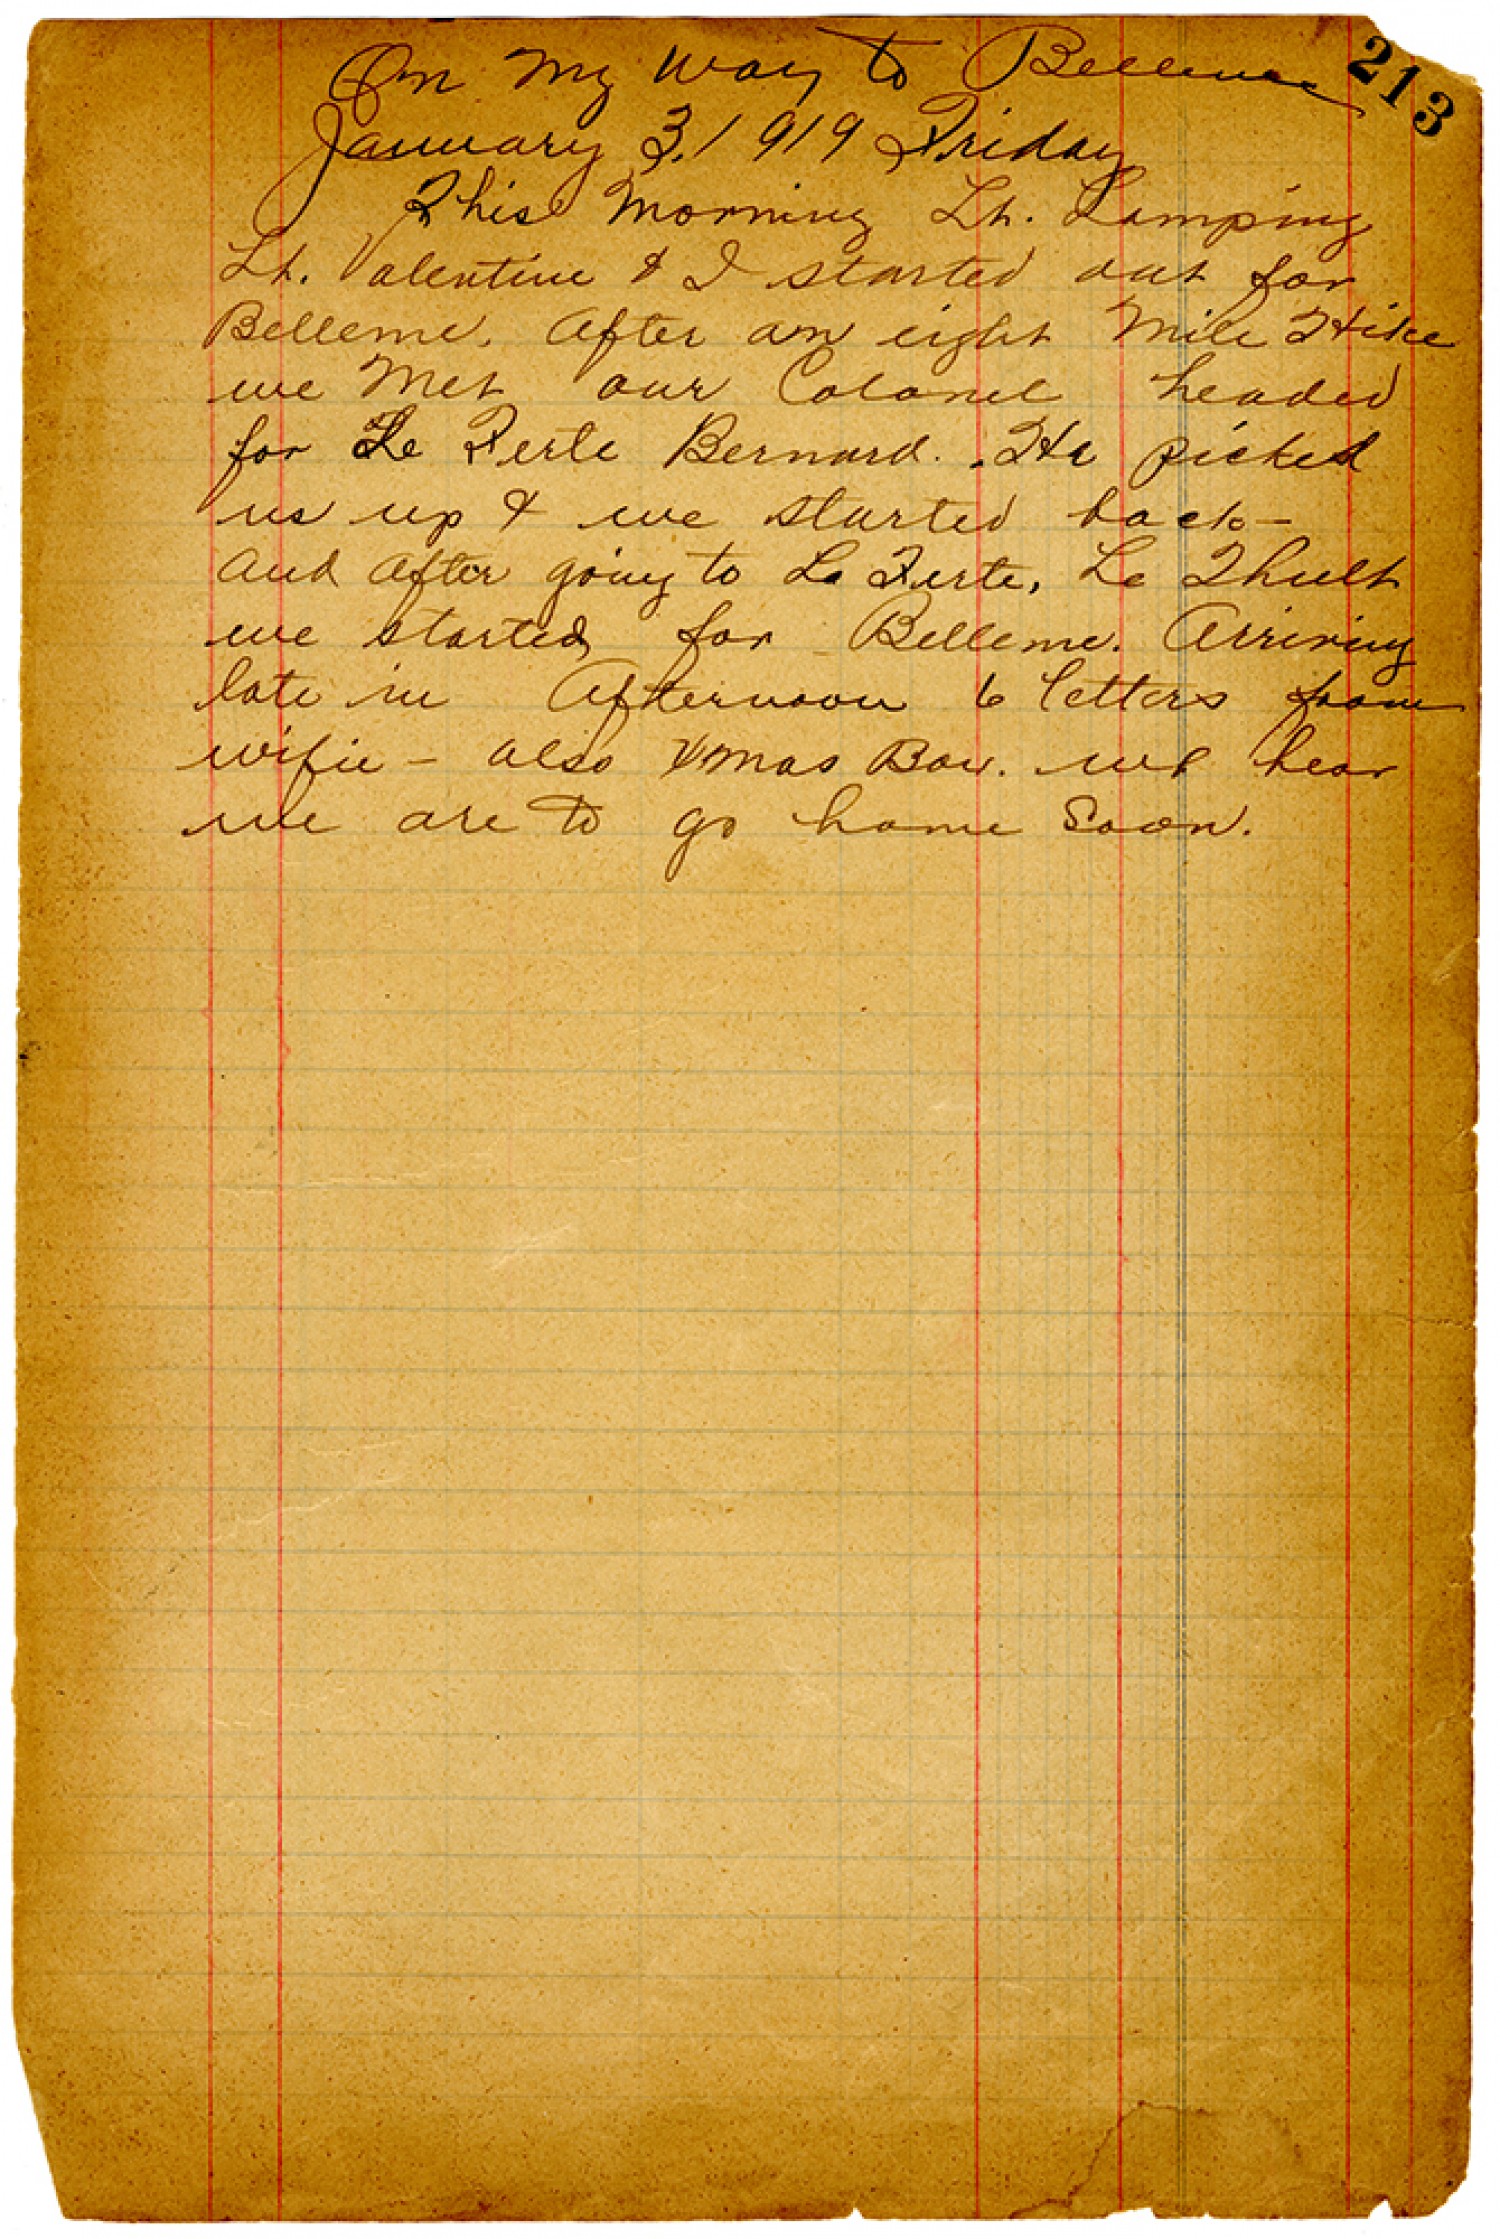 213
On My Way to Belleme
January 3, 1919 Friday
This Morning Lt. Lamping
Lt. Valentine & I started out for
Belleme. After an eight Mile Hike
we Met our Colonel headed
for Le Ferte Bernard. He picked
us up & we started back -
and after going to La Ferte, Le Thult
we started for Belleme. Arriving
late in Afternoon 6 letters from
wifie - also Xmas Box. we hear
we are to go home Soon.